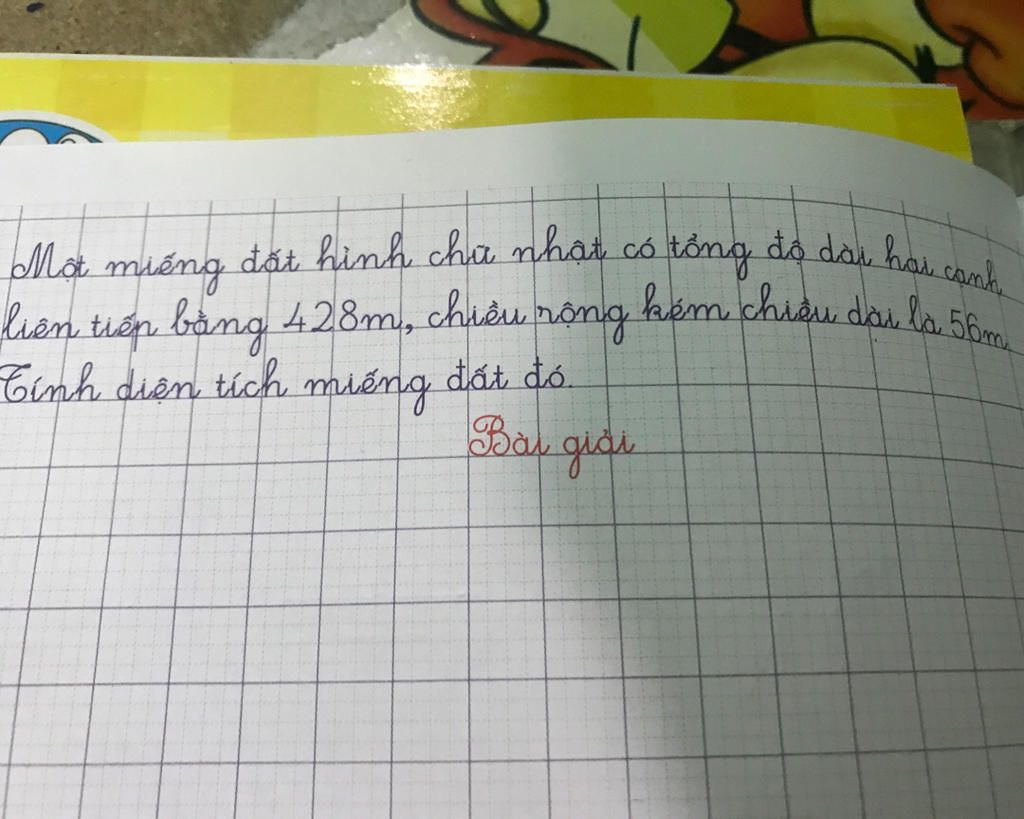 Một miếng đất hình chữ nhật có tổng độ dài hai cạnh
liên tiếp bằng 428m, chiều rộng kém chiều dài là 56m
Tính diện tích miếng đất đó.
Bài giải